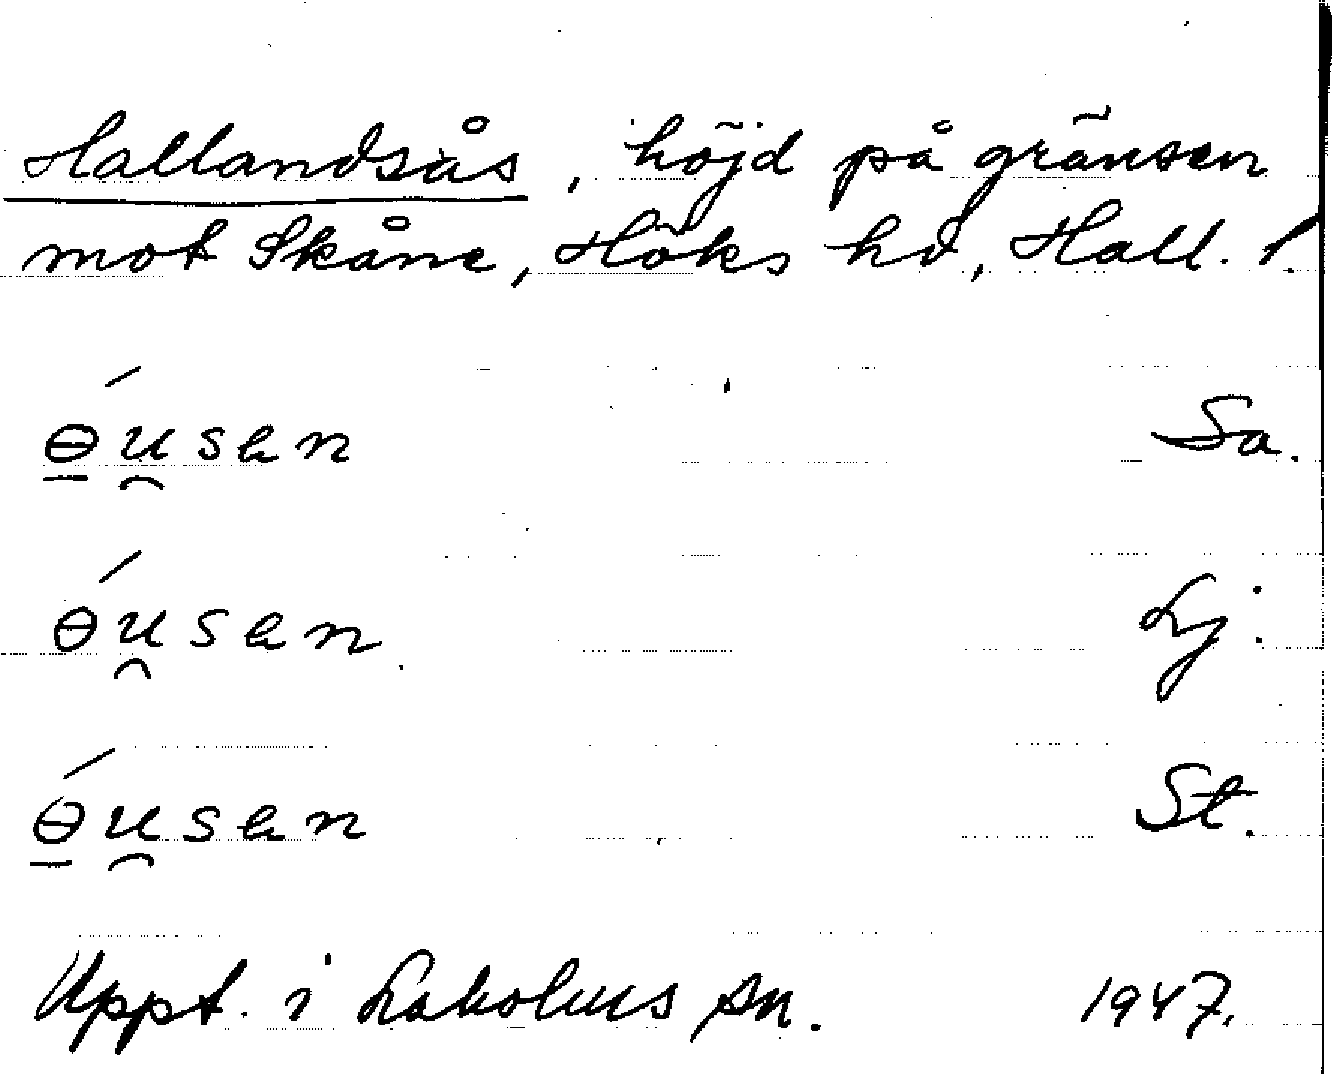 Hallandsås, höjd på gränsen
mot Skåne, Höks hd, Hall. l.
ɵ́u̯sən Sa.
ɵ́u̯sən Lj.
ɵ́u̯sən St.
Uppt. i Laholms sn. 1947.